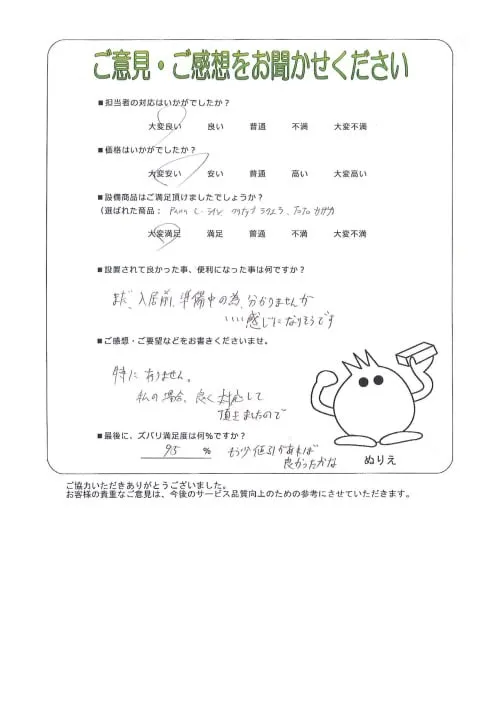 ご意見・ご感想をお聞かせください
■担当者の対応はいかがでしたか?
大変良い 良い 普通 不満 大変不満
■価格はいかがでしたか?
大変安い 安い 普通 高い 大変高い
■設備商品はご満足頂けましたでしょうか?
(選ばれた商品: クリナップ ラクエラ、TOTO
大変満足 満足 普通 不満 大変不満
■設置されて良かった事、便利になった事は何ですか?
まだ、入居前、準備中の為、分かりませんが
いい感じになりそうです
■ご感想・ご要望などをお書きくださいませ。
特に ありません。
私の場合、良く対応して
頂きましたので
■最後に、ズバリ満足度は何%ですか?
95 % もう少し値引があれば
良かったかな
ぬりえ
ご協力いただきありがとうございました。
お客様の貴重なご意見は、今後のサービス品質向上のための参考にさせていただきます。